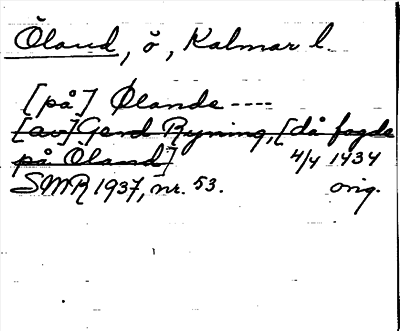 Öland, ö, Kalmar l.
[på] Ølande ----
[av] Gerd Ryning, [då fogde
på Öland] 4/4 1434
SMR 1937, nr. 53. orig.